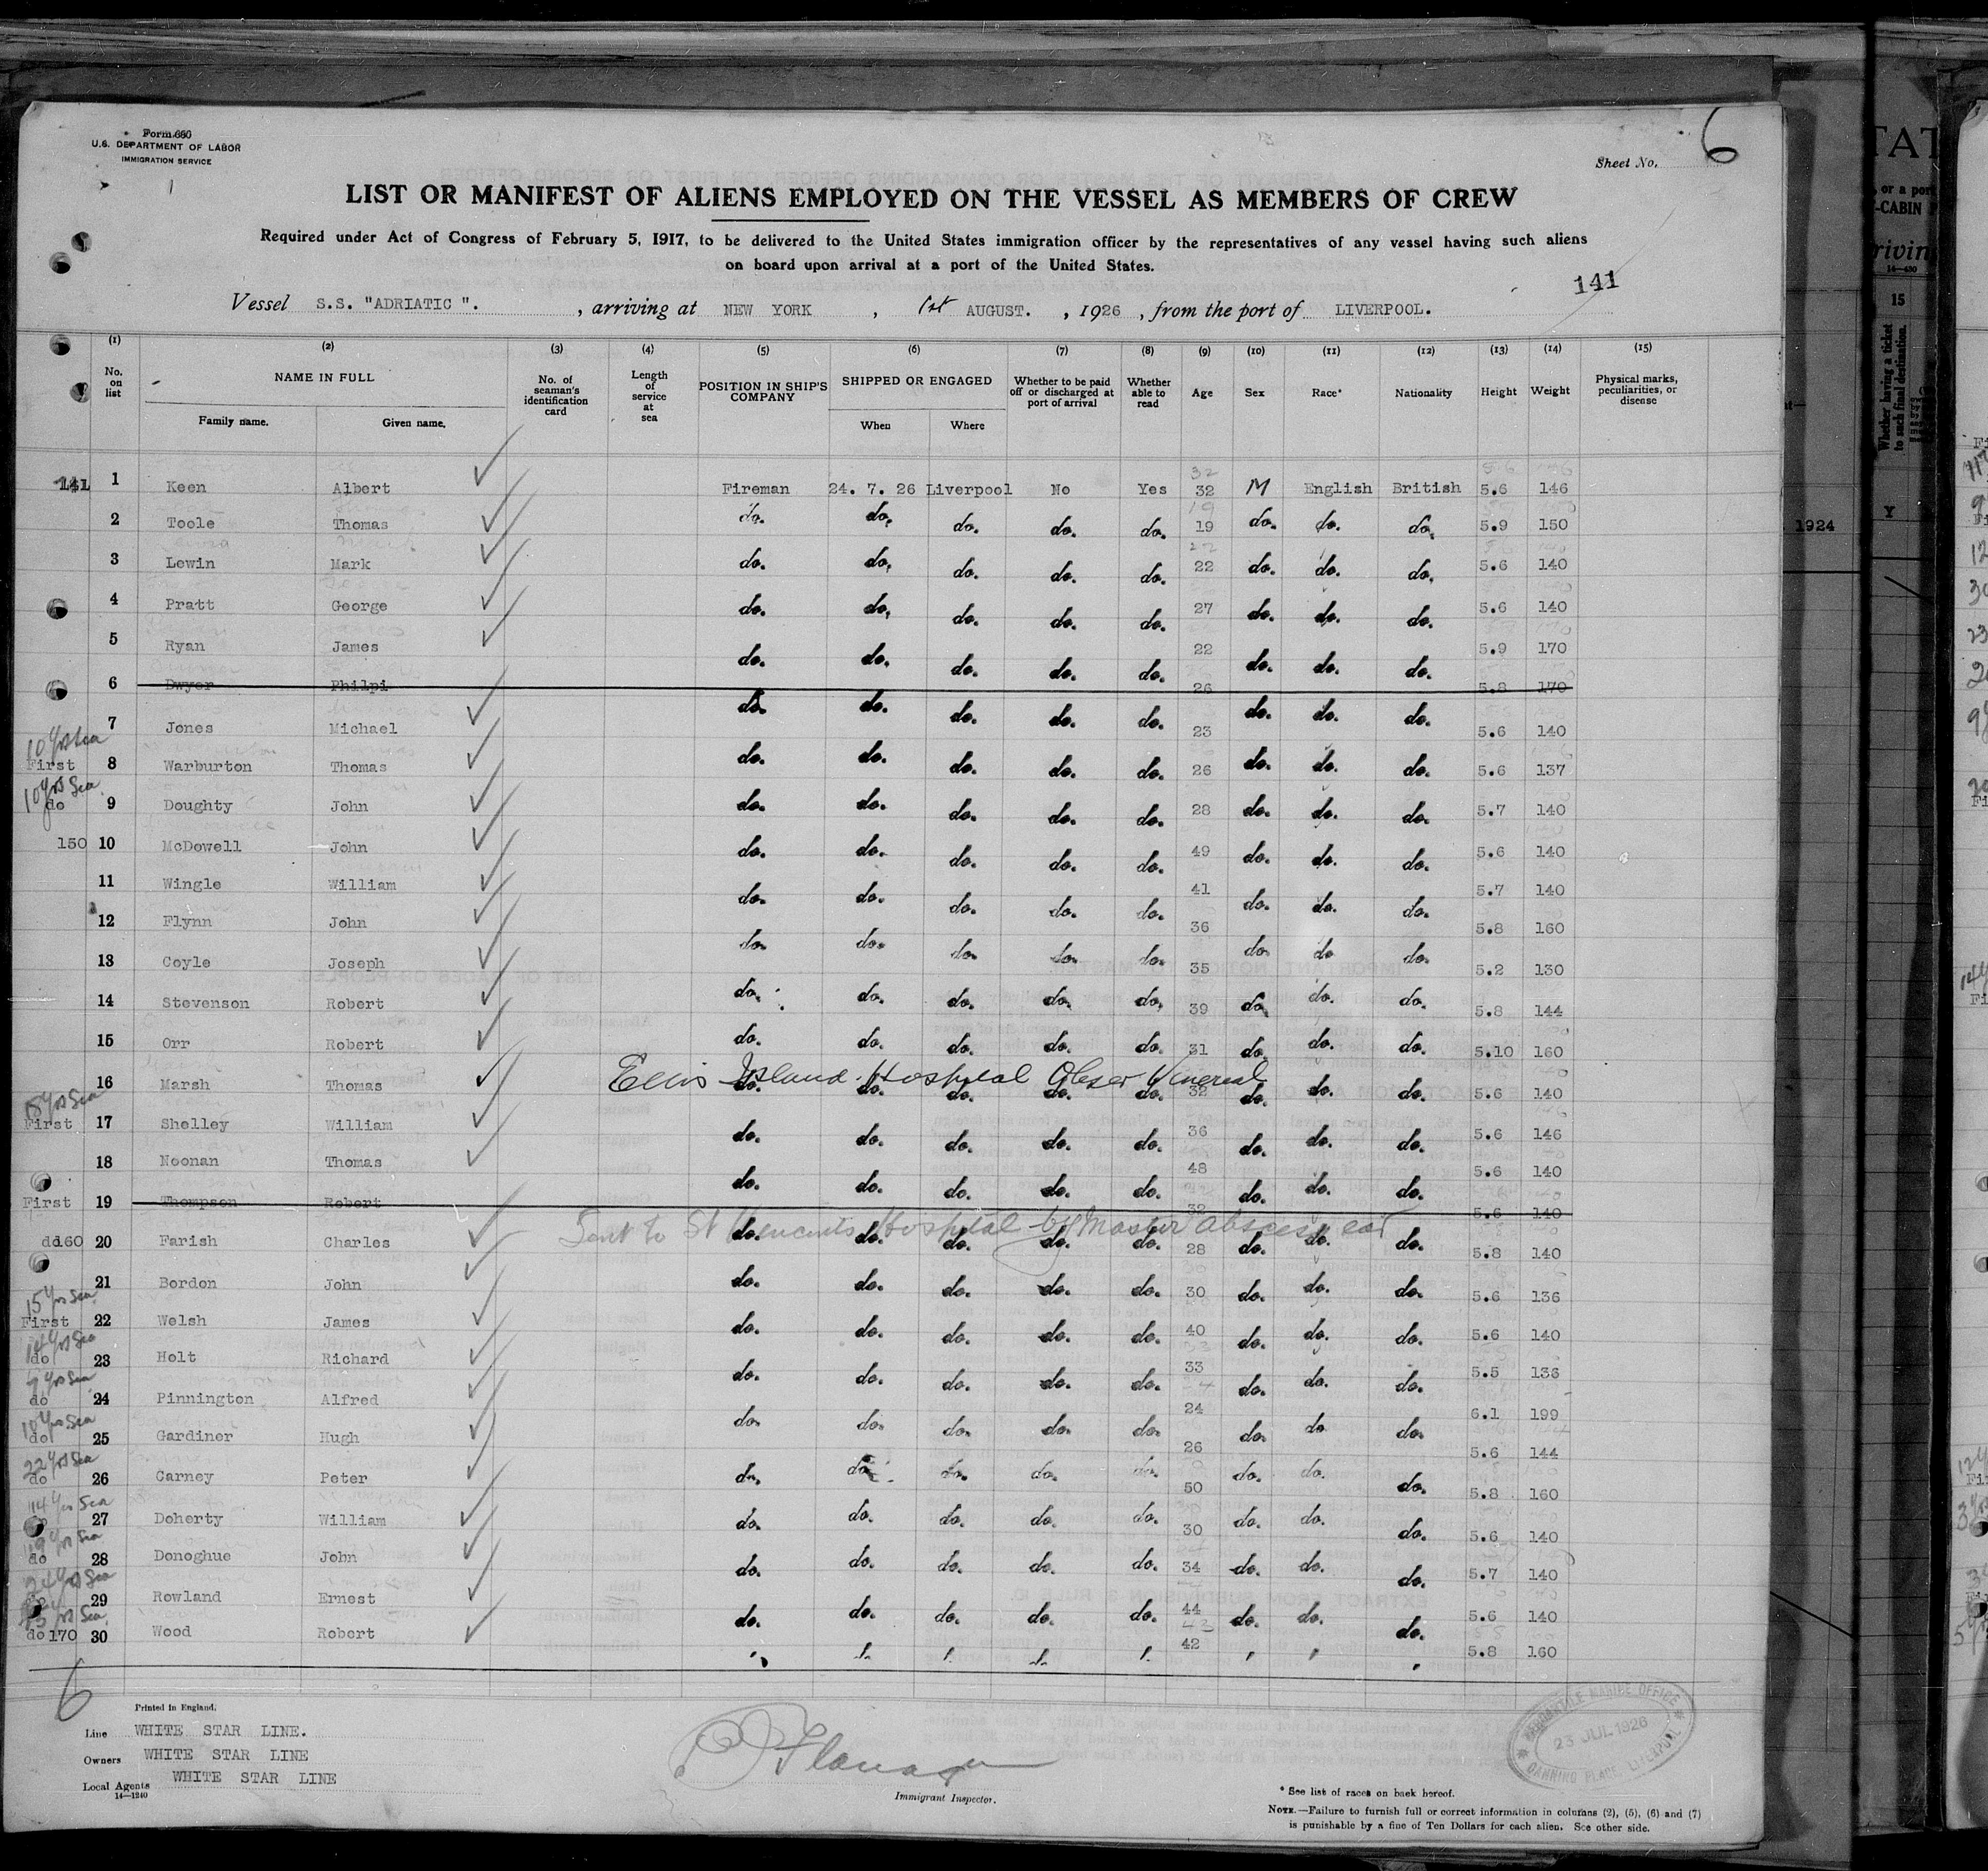 Form 680
U.S. DEPARTMENT OF LABOR
IMMIGRATION SERVICE
Sheet No. 6
LIST OR MANIFEST OF ALIENS EMPLOYED ON THE VESSEL AS MEMBERS OF CREW
Required under Act of Congress of February 5, 1917, to be delivered to the United States immigration officer by the representatives of any vessel having such aliens
on board upon arrival at a port of the United States.
141
Vessel S.S. "ADRIATIC ". , arriving at NEW YORK , 1st AUGUST. , 1926 , from the port of LIVERPOOL.
(1) (2) (3) (4) (5) (6) (7) (8) (9) (10) (11) (12) (13) (14) (15)
No. on list NAME IN FULL Family name. Given name. No. of seaman's identification card Length of service at sea POSITION IN SHIP'S COMPANY SHIPPED OR ENGAGED When Where Whether to be paid off or discharged at port of arrival Whether able to read Age Sex Race* Nationality Height Weight Physical marks, peculiarities, or disease
141 1 Keen Albert Fireman 24. 7. 26 Liverpool No Yes 32 M English British 5.6 146
2 Toole Thomas do. do. do. do. do. 19 do. do. do. 5.9 150
3 Lewin Mark do. do. do. do. do. 22 do. do. do. 5.6 140
4 Pratt George do. do. do. do. do. 27 do. do. do. 5.6 140
5 Ryan James do. do. do. do. do. 22 do. do. do. 5.9 170
6 Dwyer Philpi do. do. do. do. do. 26 do. do. do. 5.8 170
7 Jones Michael do. do. do. do. do. 23 do. do. do. 5.6 140
10 yrs Sea
First 8 Warburton Thomas do. do. do. do. do. 26 do. do. do. 5.6 137
10 yrs Sea
do 9 Doughty John do. do. do. do. do. 28 do. do. do. 5.7 140
150 10 McDowell John do. do. do. do. do. 49 do. do. do. 5.6 140
11 Wingle William do. do. do. do. do. 41 do. do. do. 5.7 140
12 Flynn John do. do. do. do. do. 36 do. do. do. 5.8 160
13 Coyle Joseph do. do. do. do. do. 35 do. do. do. 5.2 130
14 Stevenson Robert do. do. do. do. do. 39 do. do. do. 5.8 144
15 Orr Robert do. do. do. do. do. 31 do. do. do. 5.10 160
Ellis Island Hospital Obser Venereal
16 Marsh Thomas do. do. do. do. do. 32 do. do. do. 5.6 140
18 yrs Sea
First 17 Shelley William do. do. do. do. do. 36 do. do. do. 5.6 146
18 Noonan Thomas do. do. do. do. do. 48 do. do. do. 5.6 140
First 19 Thompson Robert 32 5.6 140
Sent to St Vincents Hospital by Master abscess ear
do 160 20 Farish Charles do. do. do. do. do. 28 do. do. do. 5.8 140
21 Bordon John do. do. do. do. do. 30 do. do. do. 5.6 136
15 yrs Sea
First 22 Welsh James do. do. do. do. do. 40 do. do. do. 5.6 140
14 yrs Sea
do 23 Holt Richard do. do. do. do. do. 33 do. do. do. 5.5 136
9 yrs Sea
do 24 Pinnington Alfred do. do. do. do. do. 24 do. do. do. 6.1 199
18 yrs Sea
do 25 Gardiner Hugh do. do. do. do. do. 26 do. do. do. 5.6 144
22 yrs Sea
do 26 Carney Peter do. do. do. do. do. 50 do. do. do. 5.8 160
14 yrs Sea
27 Doherty William do. do. do. do. do. 30 do. do. do. 5.6 140
19 yrs Sea
do 28 Donoghue John do. do. do. do. do. 34 do. do. do. 5.7 140
24 yrs Sea
29 Rowland Ernest do. do. do. do. do. 44 do. do. do. 5.6 140
yrs Sea
do 170 30 Wood Robert 42 5.8 160
6
Printed in England.
Line WHITE STAR LINE.
Owners WHITE STAR LINE
Local Agents WHITE STAR LINE
14—1240
Flanagan
Immigrant Inspector.
MERCANTILE MARINE OFFICE
23 JUL 1926
CANNING PLACE LIVERPOOL
* See list of races on back hereof.
NOTE.—Failure to furnish full or correct information in columns (2), (5), (6) and (7)
is punishable by a fine of Ten Dollars for each alien. See other side.
1924
or a port
-CABIN
14—430
15
Whether having a ticket
to such final destination.
Y